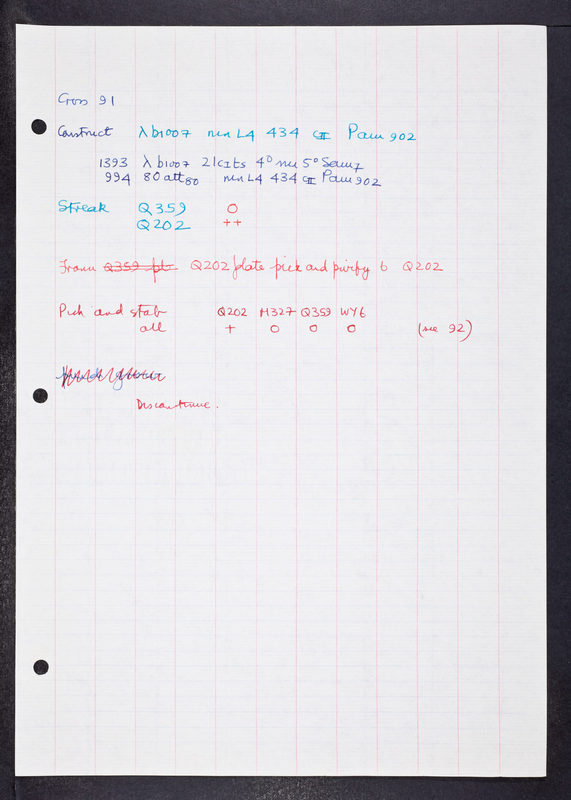 Cross 91
Construct λb1007 nin L4 434 cII Pam 902
1393 λ b1007 21cIts 4° nin 5° Sam7
994 80att80 nin L4 434 cII Pam 902
Streak Q359 O
Q202 ++
From Q359 pl Q202 plate pick and purify 6 Q202
Pick and stab Q202 M327 Q359 WY6
all + O O O (see 92)
Discontinue.